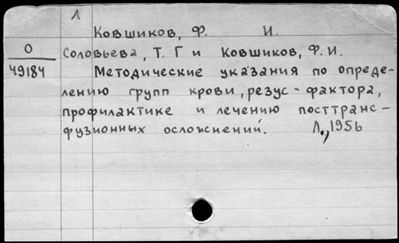 Л
Ковшиков, Ф. И.
О
49184
Соловьева, Т. Г и Ковшиков, Ф. И.
Методические указания по опреде-
лению групп крови, резус-фактора,
профилактике и лечению посттранс-
фузионных осложнений. Л., 1956